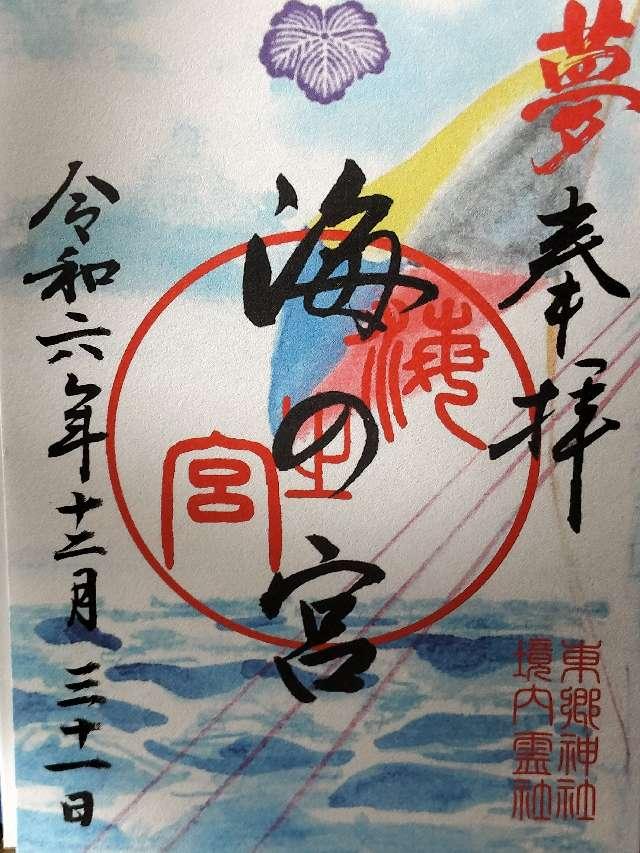 夢
奉拝
海の宮
海
之
宮
令和六年十二月三十一日
東郷神社
境内霊社